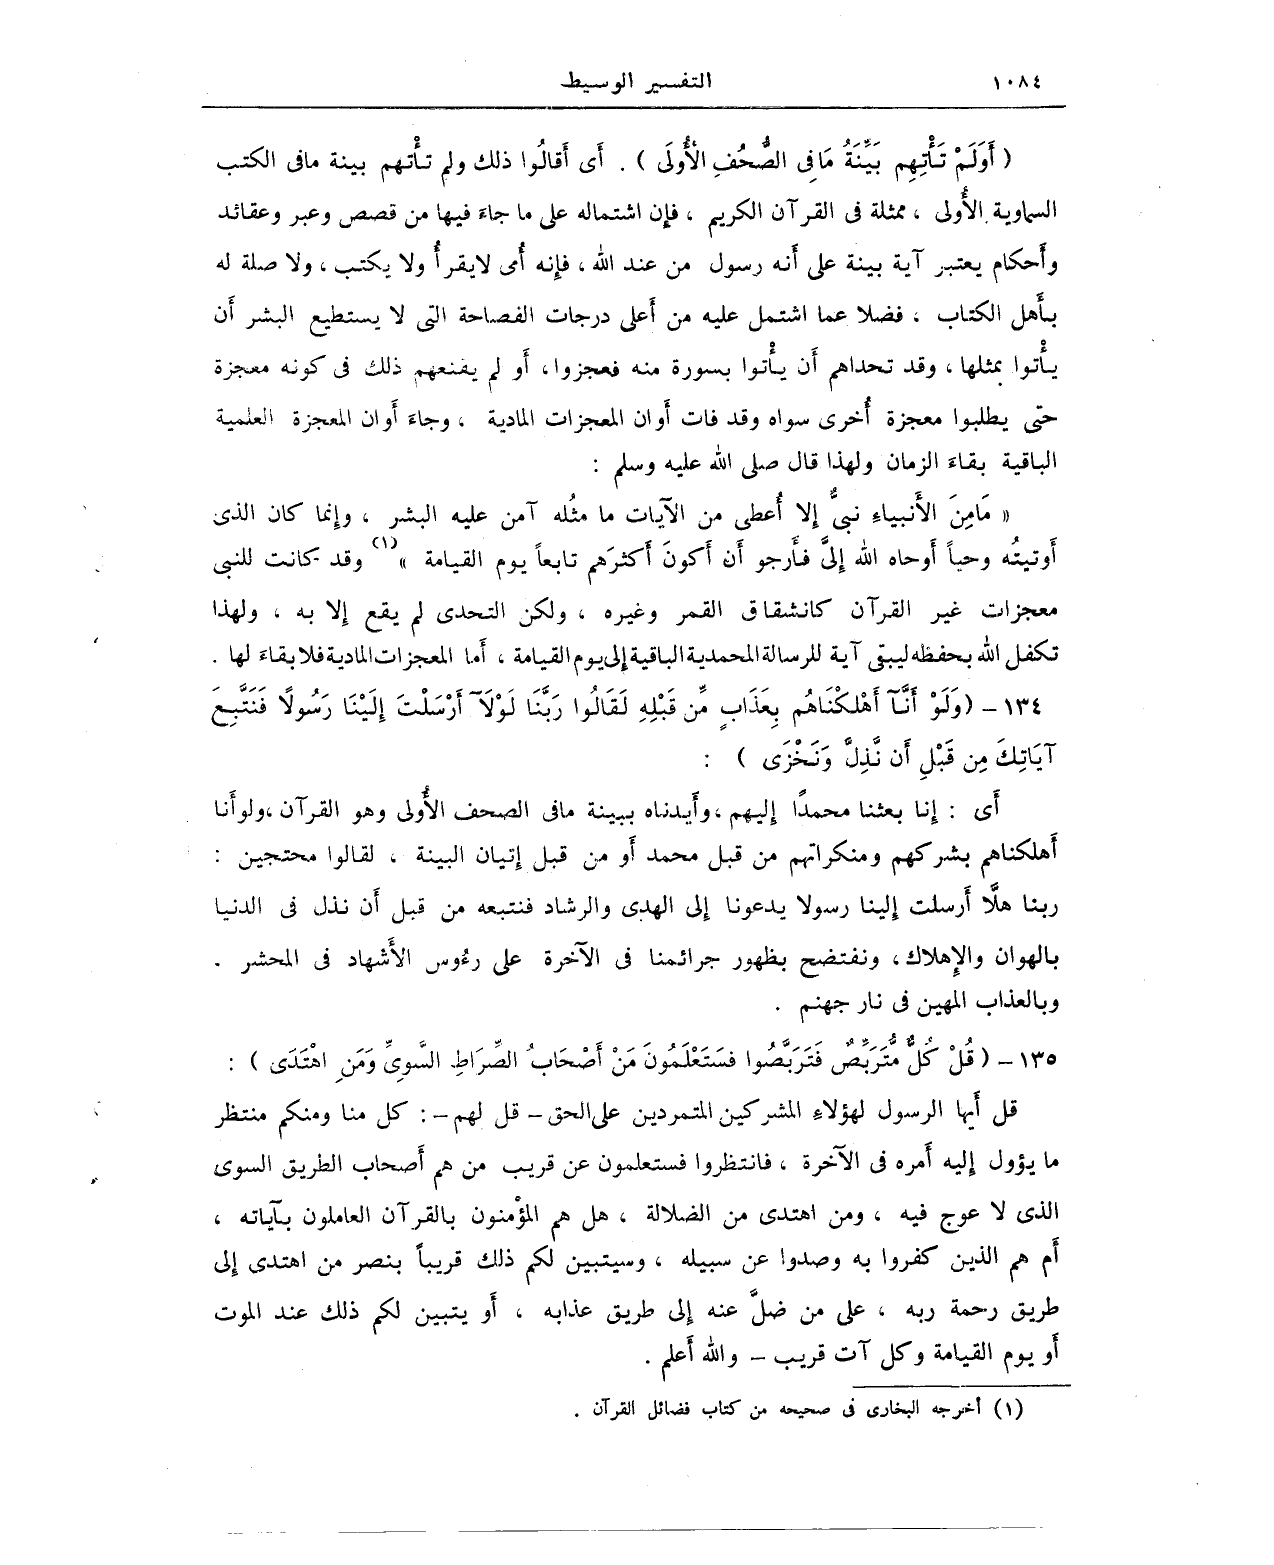 ١٠٨٤ التفسير الوسيط
( أَوَلَمْ تَأْتِهِم بَيِّنَةُ مَا فِى الصُّحُفِ الْأُولَى ) . أَى أَقالُوا ذلك ولم تأْتهم بينة مافى الكتب
السماوية الأُولى ، ممثلة فى القرآن الكريم ، فإن اشتماله على ما جاءَ فيها من قصص وعبر وعقائد
وأَحكام يعتبر آية بينة على أَنه رسول من عند الله ، فإنه أُمى لايقرأُ ولا يكتب ، ولا صلة له
بأَهل الكتاب ، فضلا عما اشتمل عليه من أَعلى درجات الفصاحة التى لا يستطيع البشر أَن
يأْتوا بمثلها ، وقد تحداهم أَن يأْتوا بسورة منه فعجزوا ، أَو لم يقنعهم ذلك فى كونه معجزة
حتى يطلبوا معجزة أُخرى سواه وقد فات أَوان المعجزات المادية ، وجاءَ أَوان المعجزة العلمية
الباقية بقاءَ الزمان ولهذا قال صلى الله عليه وسلم :
« مَامِنَ الأَنبياءِ نبىٌّ إلا أُعطى من الآيات ما مثْلُه آمن عليه البشر ، وإنما كان الذى
أُوتيتُه وحياً أَوحاه الله إلىَّ فأَرجو أَن أَكونَ أَكثرَهم تابعاً يوم القيامة » (١) وقد كانت للنبى
معجزات غير القرآن كانشقاق القمر وغيره ، ولكن التحدى لم يقع إلا به ، ولهذا
تكفل الله بحفظه ليبقى آية للرسالة المحمدية الباقية إلى يوم القيامة ، أَما المعجزات المادية فلا بقاءَ لها .
١٣٤ – (وَلَوْ أَنَّآ أَهْلَكْنَاهُم بِعَذَابٍ مِّن قَبْلِهِ لَقَالُوا رَبَّنَا لَوْلَآ أَرْسَلْتَ إِلَيْنَا رَسُولًا فَنَتَّبِعَ
آيَاتِكَ مِن قَبْلِ أَن نَّذِلَّ وَنَخْزَى ) :
أَى : إنا بعثنا محمدًا إليهم ، وأَيدناه ببينة مافى الصحف الأُولى وهو القرآن ، ولو أَنا
أَهلكناهم بشركهم ومنكراتهم من قبل محمد أَو من قبل إتيان البينة ، لقالوا محتجين :
ربنا هلَّا أَرسلت إلينا رسولا يدعونا إلى الهدى والرشاد فنتبعه من قبل أَن نذل فى الدنيا
بالهوان والإهلاك ، ونفتضح بظهور جرائمنا فى الآخرة على رءُوس الأَشهاد فى المحشر .
وبالعذاب المهين فى نار جهنم .
١٣٥ – ( قُلْ كُلٌّ مُّتَرَبِّصٌ فَتَرَبَّصُوا فَسَتَعْلَمُونَ مَنْ أَصْحَابُ الصِّرَاطِ السَّوِىِّ وَمَنِ اهْتَدَى ) :
قل أَيها الرسول لهؤلاءِ المشركين المتمردين على الحق – قل لهم – : كل منا ومنكم منتظر
ما يؤول إليه أَمره فى الآخرة ، فانتظروا فستعلمون عن قريب من هم أَصحاب الطريق السوى
الذى لا عوج فيه ، ومن اهتدى من الضلالة ، هل هم المؤْمنون بالقرآن العاملون بآياته ،
أَم هم الذين كفروا به وصدوا عن سبيله ، وسيتبين لكم ذلك قريباً بنصر من اهتدى إلى
طريق رحمة ربه ، على من ضلَّ عنه إلى طريق عذابه ، أَو يتبين لكم ذلك عند الموت
أَو يوم القيامة وكل آت قريب – والله أَعلم .
(١) أخرجه البخارى فى صحيحه من كتاب فضائل القرآن .